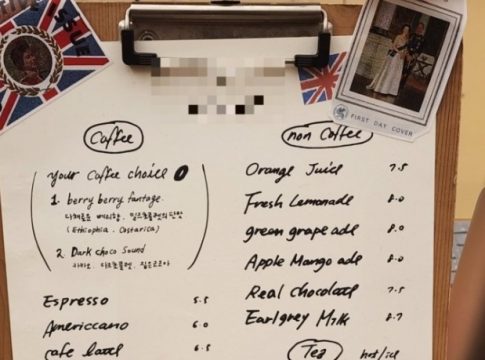 ISSUE
FIRST DAY COVER
Coffee
your Coffee choice
1. berry berry fantage.
다채로운 베리향, 밀크초콜렛의 단맛
(Ethiophia. Costarica)
2. Dark choco Sound
카카오, 다크초콜렛,
Espresso 5.5
Americcano 6.0
cafe 6.5
non Coffee
Orange Juice 7.5
Fresh Lemonade 8.0
green grape ade 8.0
Apple Mango ade 8.0
Real chocolate 7.5
Earlgrey Milk 8.7
Tea hot/ice